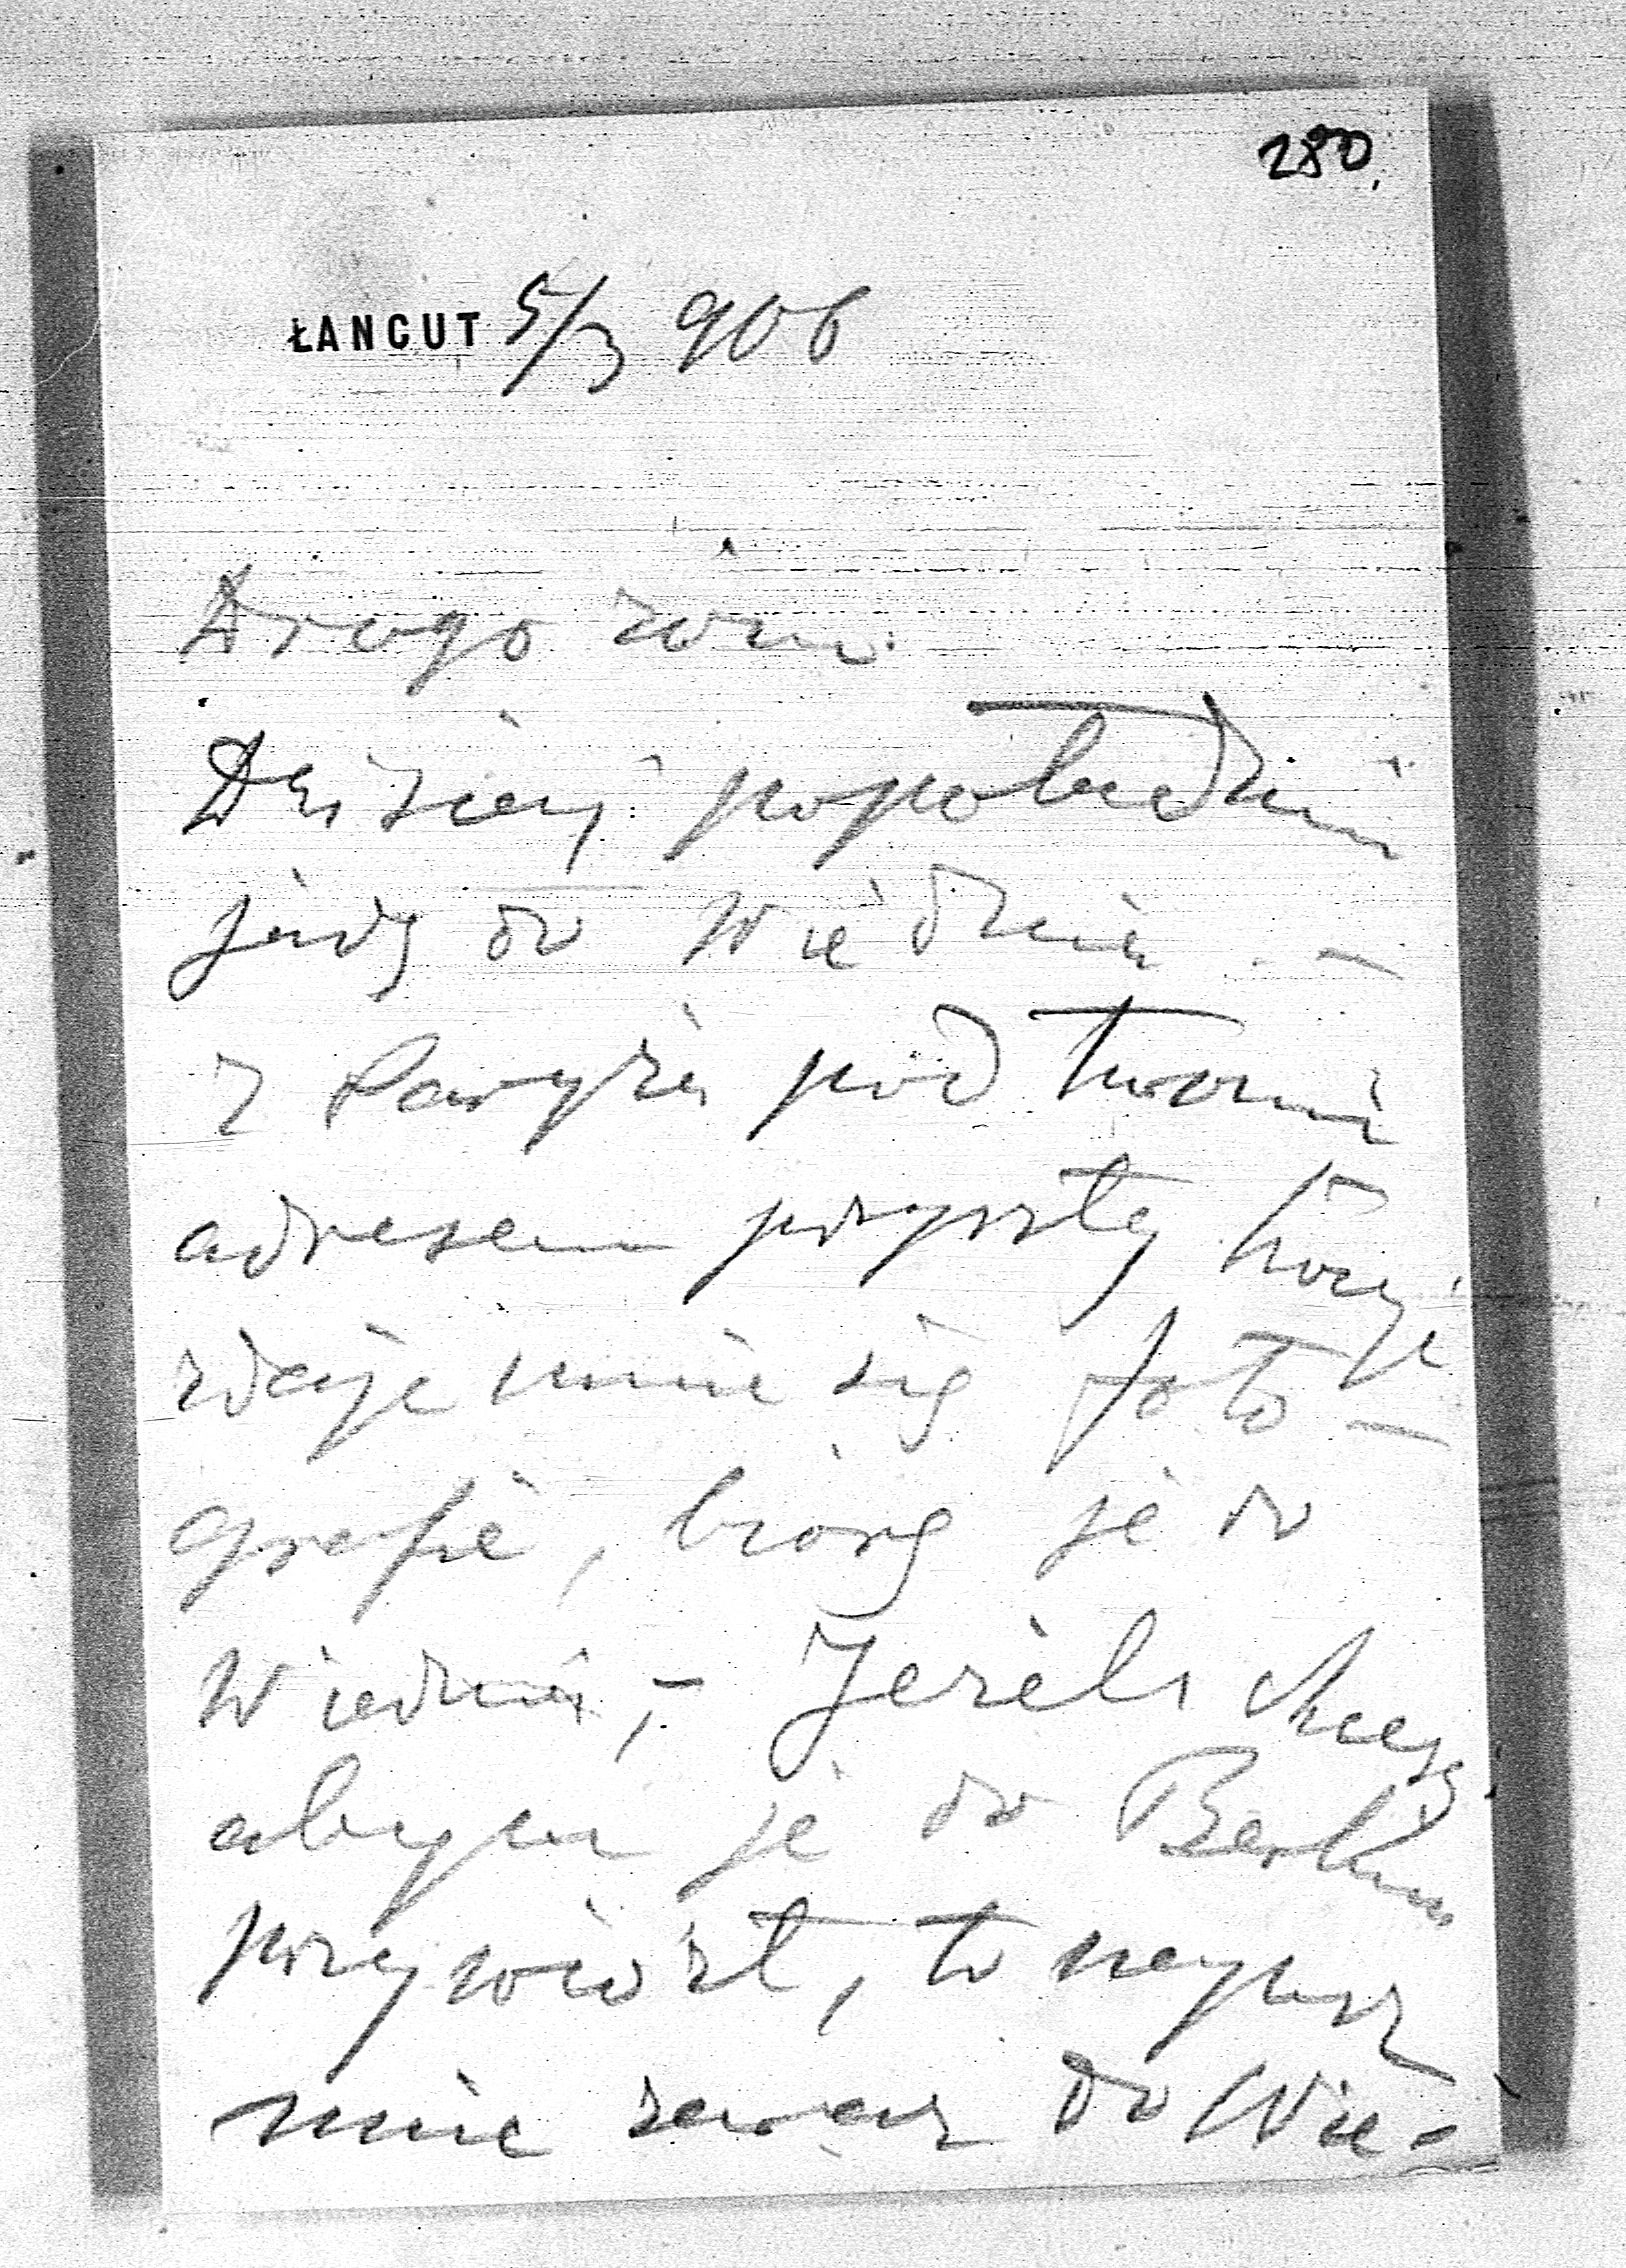 280.
ŁANCUT 5/3 906
Drogo żono.
Dzisiaj popołudniu
jadę do Wiednia. —
z Paryża pod twoim
adresem przyszły trzy
zdaje mnie się foto —
grafie, biorę je do
Wiednia, — Jeżeli chcesz
abym je do Berlina
przywiózł, to napisz
mnie zaraz do Wie-